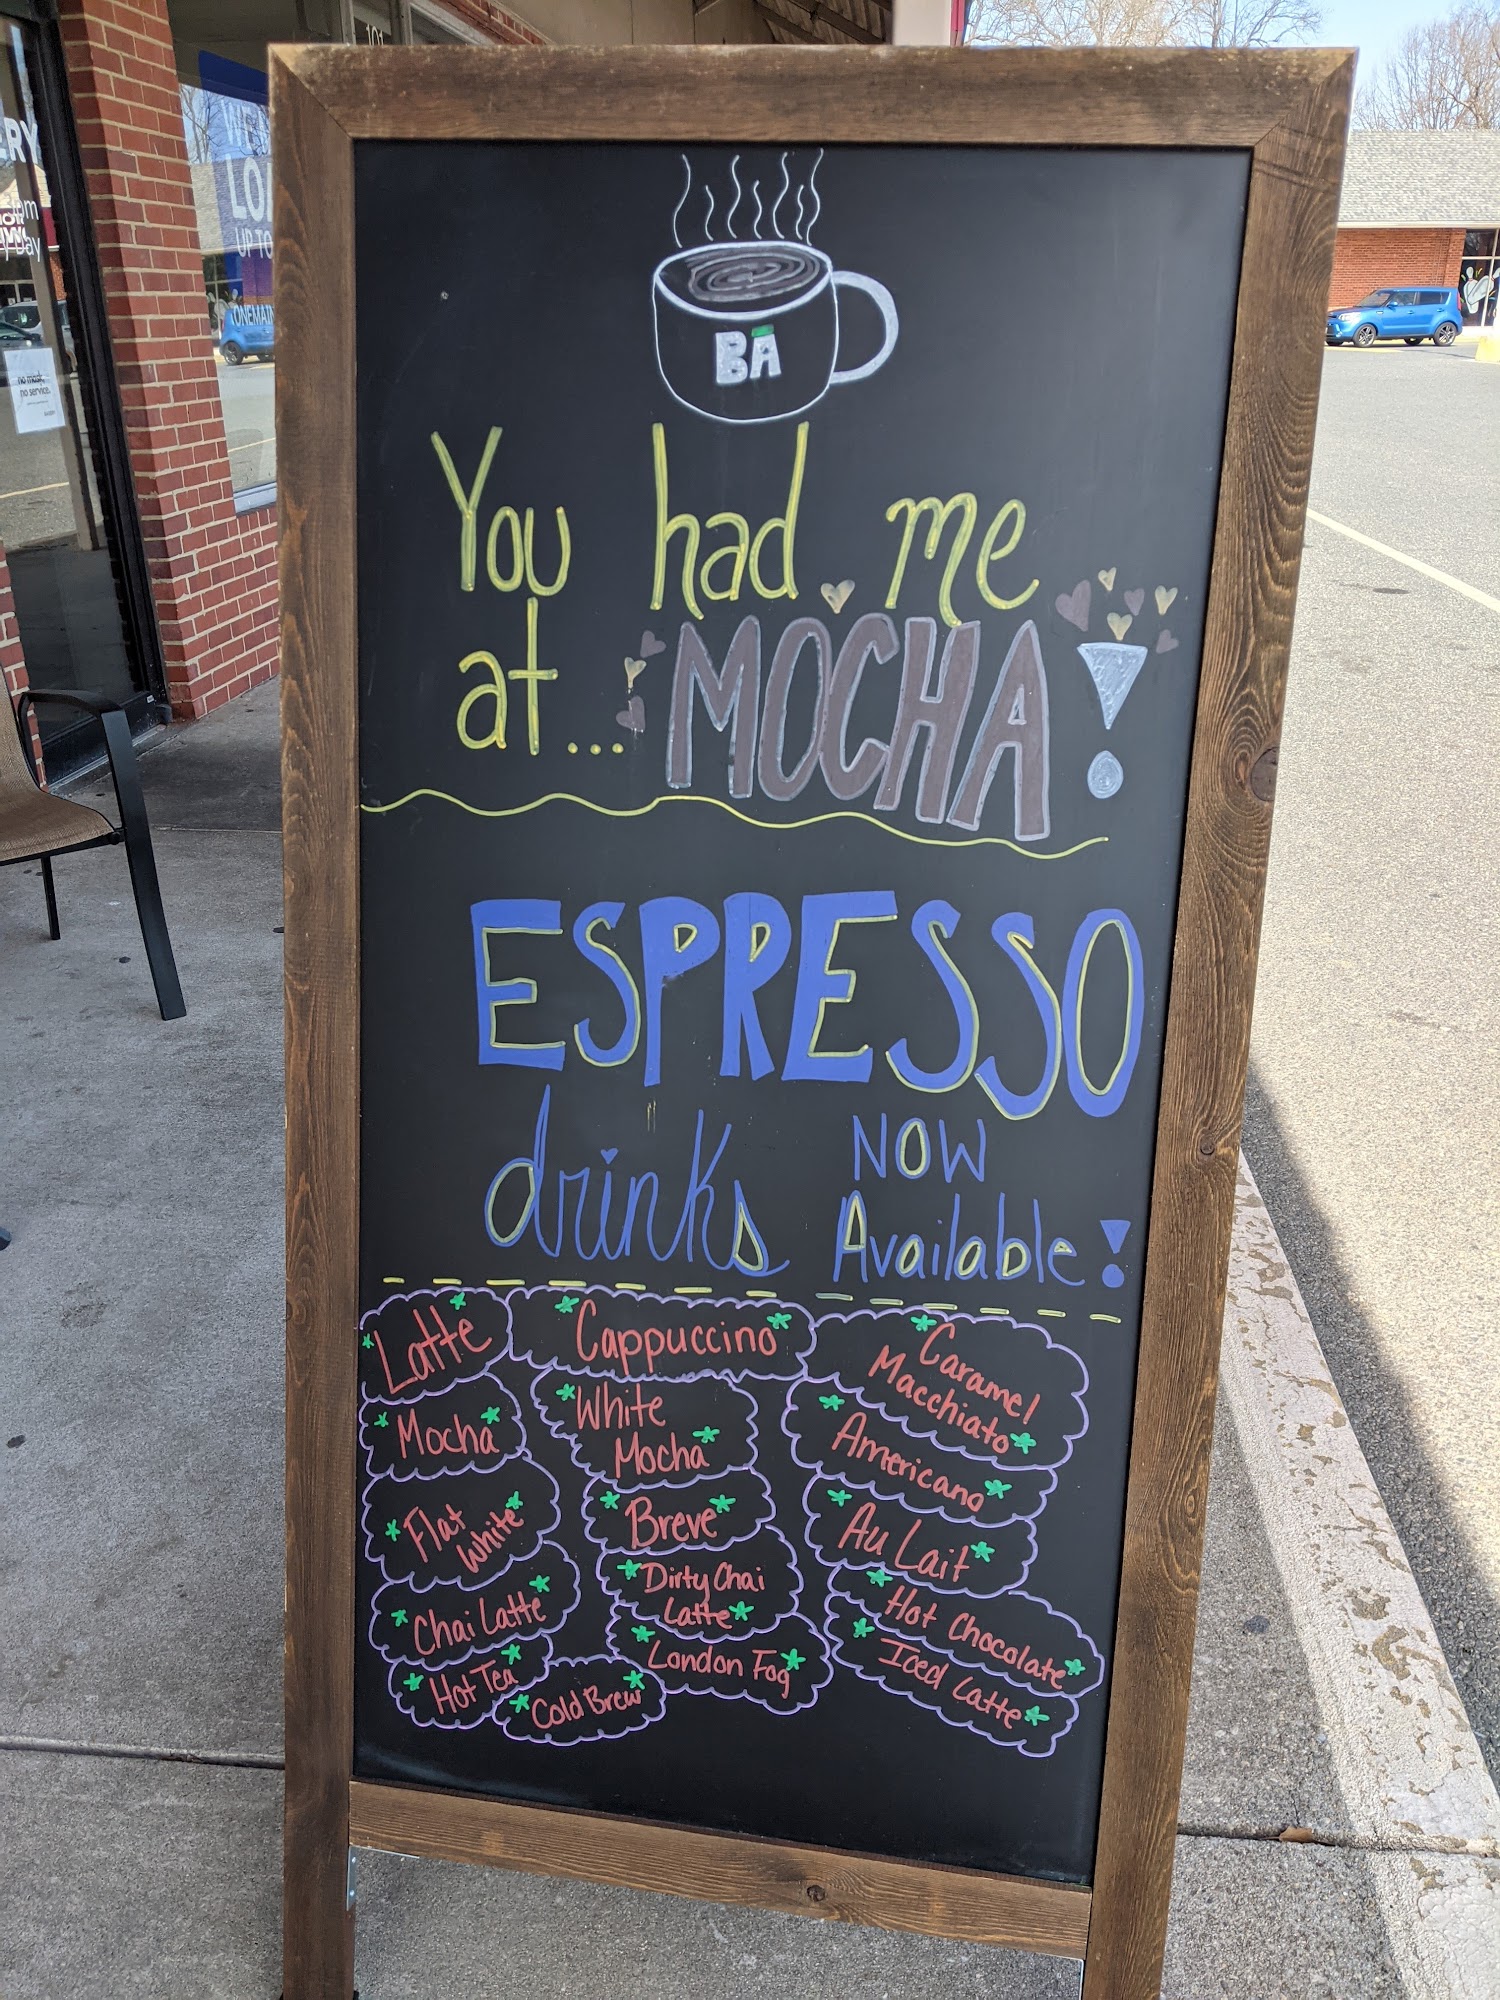 101
ERY
WE'
LO
UP TO
ONEMAIN
no mask,
no service.
BA
You had me
at... MOCHA!
ESPRESSO
drinks NOW
Available!
Latte
Cappuccino
Caramel
Macchiato
Mocha
White
Mocha
Americano
Flat
White
Breve
Au Lait
Chai Latte
Dirty Chai
Latte
Hot Chocolate
Hot Tea
London Fog
Iced Latte
Cold Brew